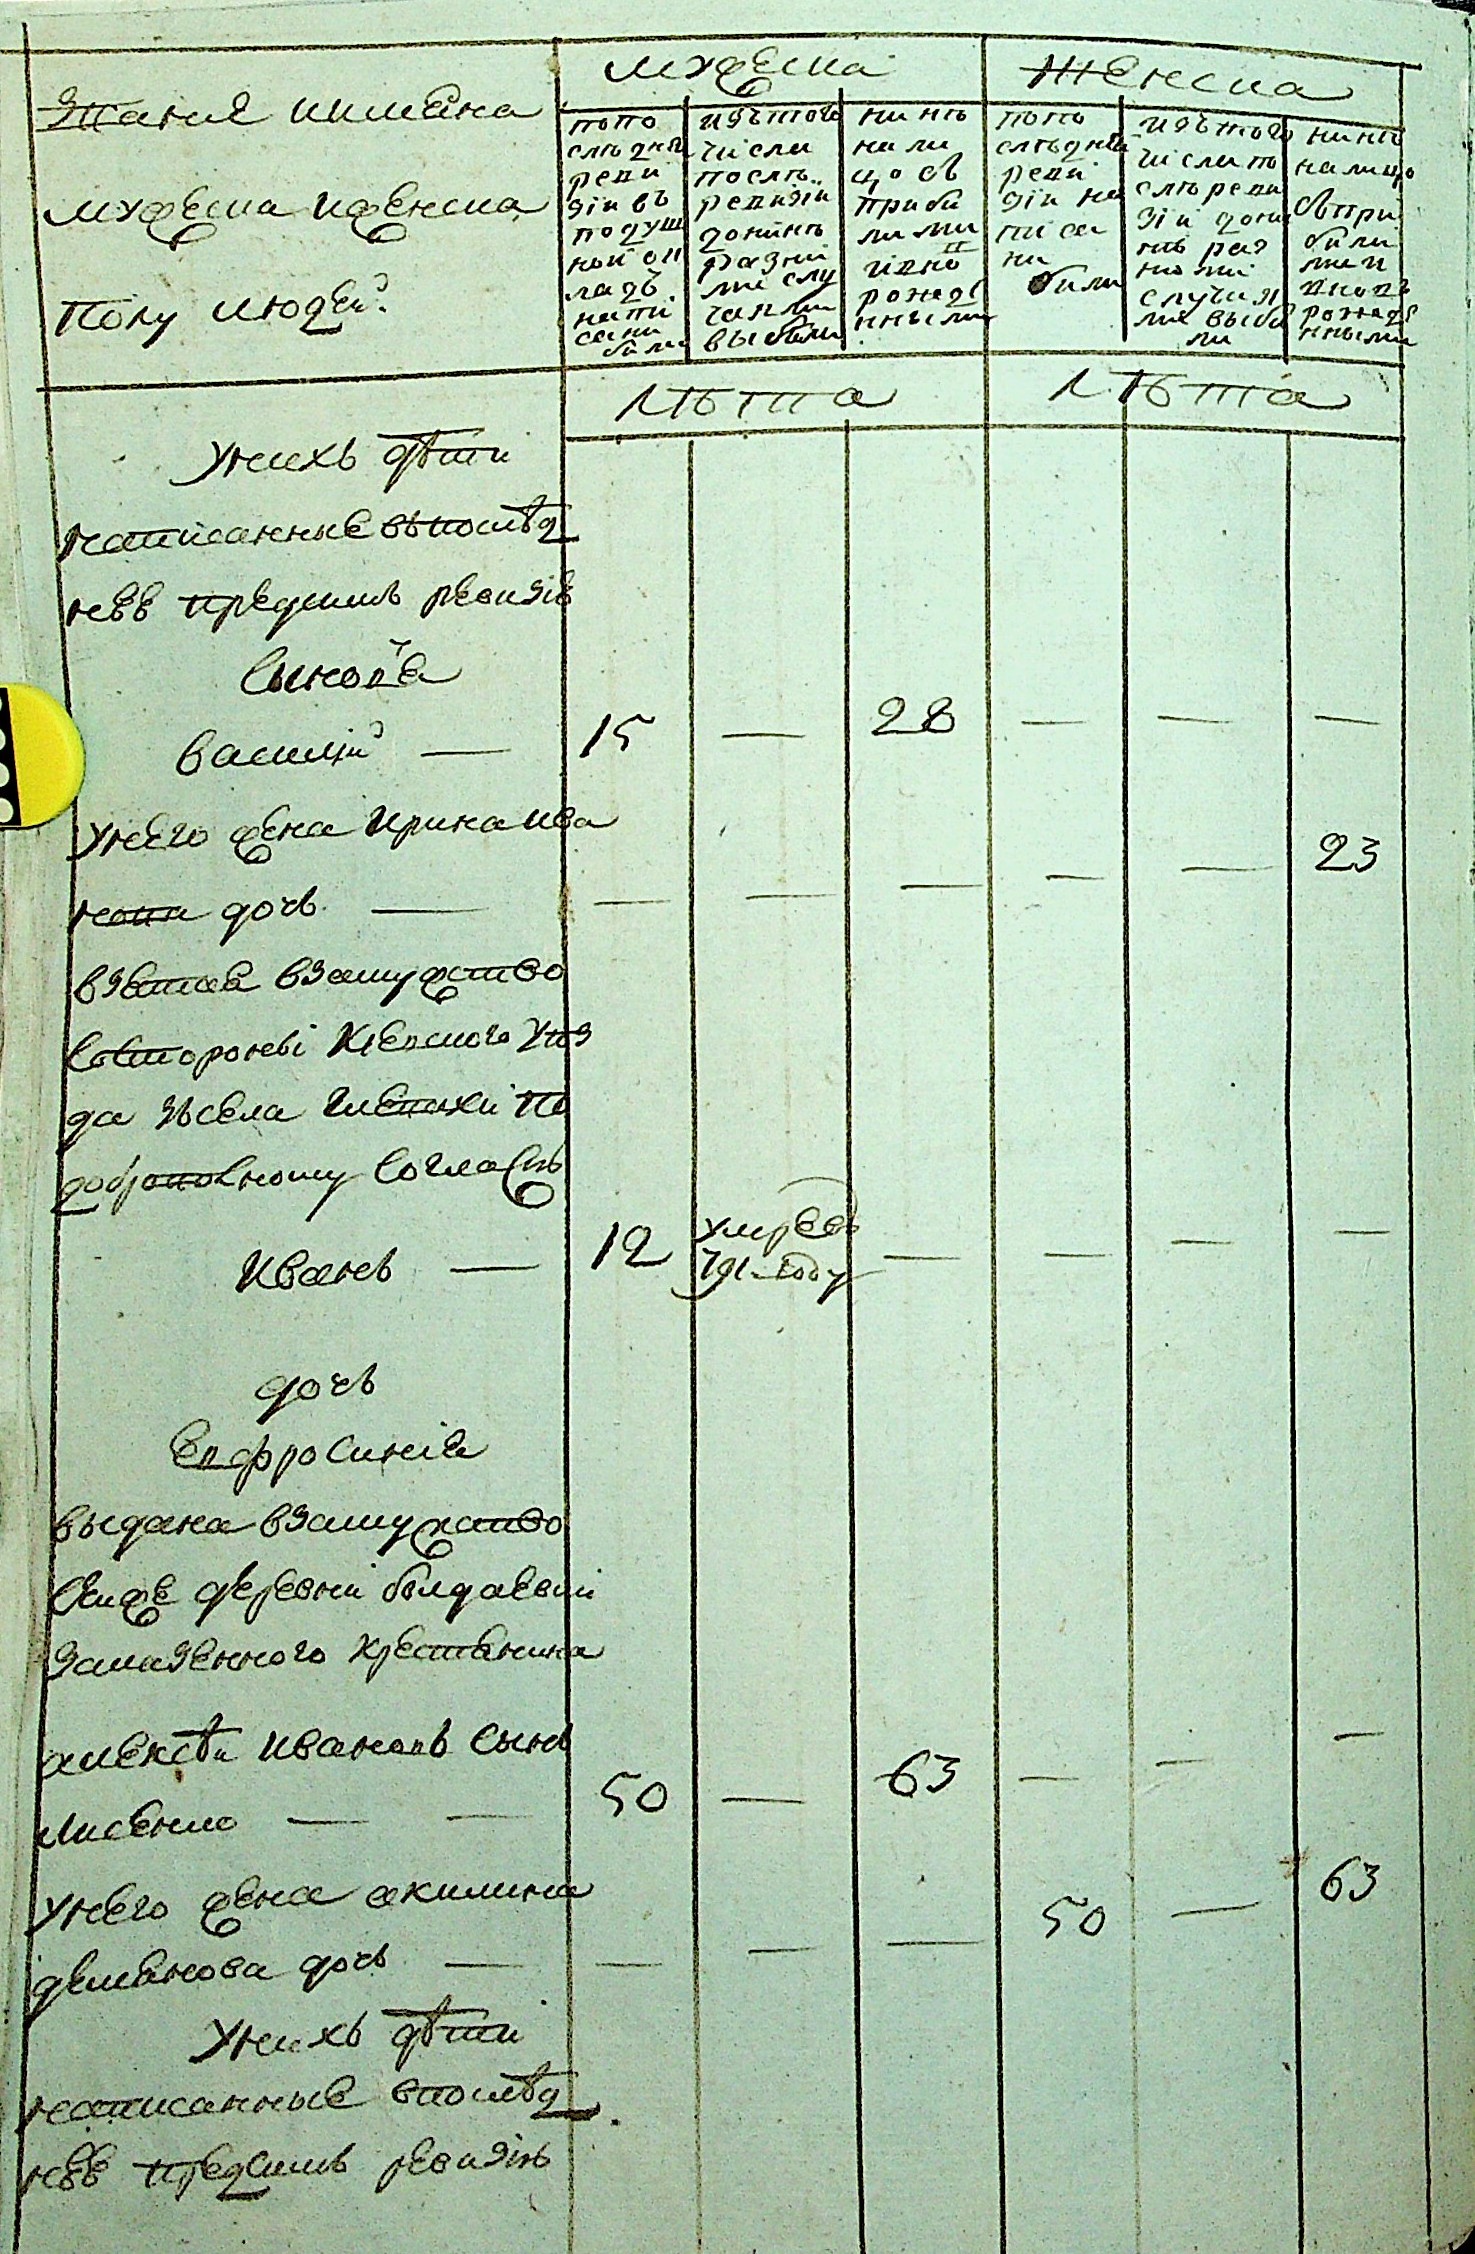 Званія и имена
мужеска и женска
полу людей.
мужеска
женска
попо
слѣдней
реви
зіи въ
подуш
ной ок
ладъ
напи
сани
били
изътого
числа
послѣ
ревизіи
донинѣ
разни
ми слу
чаями
выбыли
нинѣ
на ли
цо съ
приби
лими
и
вновь
рожде
нными
попо
слѣдней
реви
зіи на
писа
ни
били
изътого
числа по
слѣ реви
зіи дони
нѣ раз
ними
случая
ми выбы
ли
нинѣ
налицо
съ при
били
ми и
вновь
рожде
нными
лѣта
лѣта
унихъ дѣти
написанные въпослѣд
нѣй предъ симъ ревизіи
синовя
василій — 15 — 28 — — —
унего жена Ирина ива
нова дочь — — — — — — 23
взятая взамужство
состороны Кіевского уѣз
да зъсела по
добровольному согласію
иванъ — 12 умре въ 791 году — — — —
дочь
Евфросинія
выдана взамужство
сейже деревни
казенного крестянина
алексѣй ивановъ сынъ
лисенко — — 50 — 63 — — —
унего жена акилина
демянова дочь — — — — 50 — 63
унихъ дѣти
написанные впослѣд
нѣй предъ симъ ревизіи